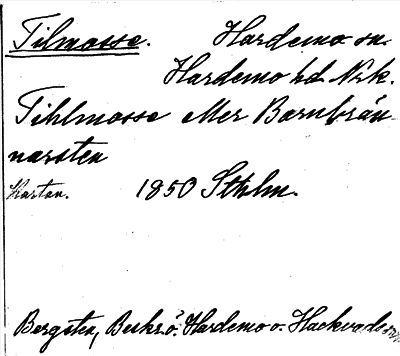 Tilmosse. Hardemo sn.
Hardemo hd. Nrk.
Tihlmosse eller Barnbrän-
narsten
Kartan. 1850 Sthlm.
Bergsten, Beskr. ö. Hardemo o. Hackvads snr